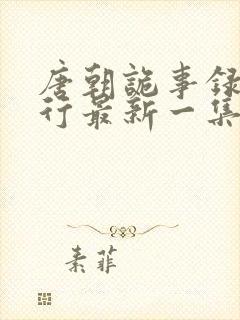 唐朝詭事録
行最新一集
素菲